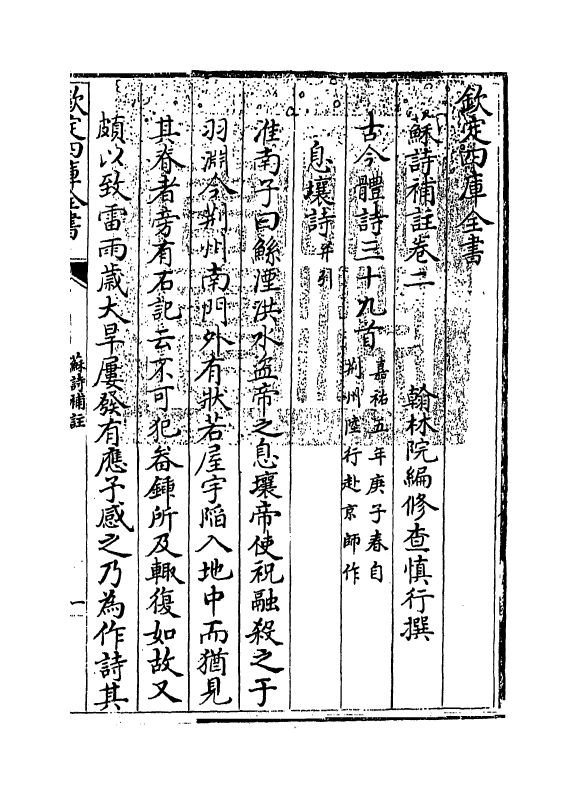 欽定四庫全書
蘇詩補註卷二
翰林院編修查慎行撰
古今體詩三十九首
嘉祐五年庚子春自
荆州陸行赴京師作
息壤詩并引
淮南子曰鯀湮洪水盗帝之息壤帝使祝融殺之于
羽淵今荆州南門外有狀若屋宇陷入地中而猶見
其脊者旁有石記云不可犯畚鍤所及輙復如故又
頗以致雷雨歲大旱屢發有應予感之乃為作詩其
欽定四庫全書
蘇詩補註
一